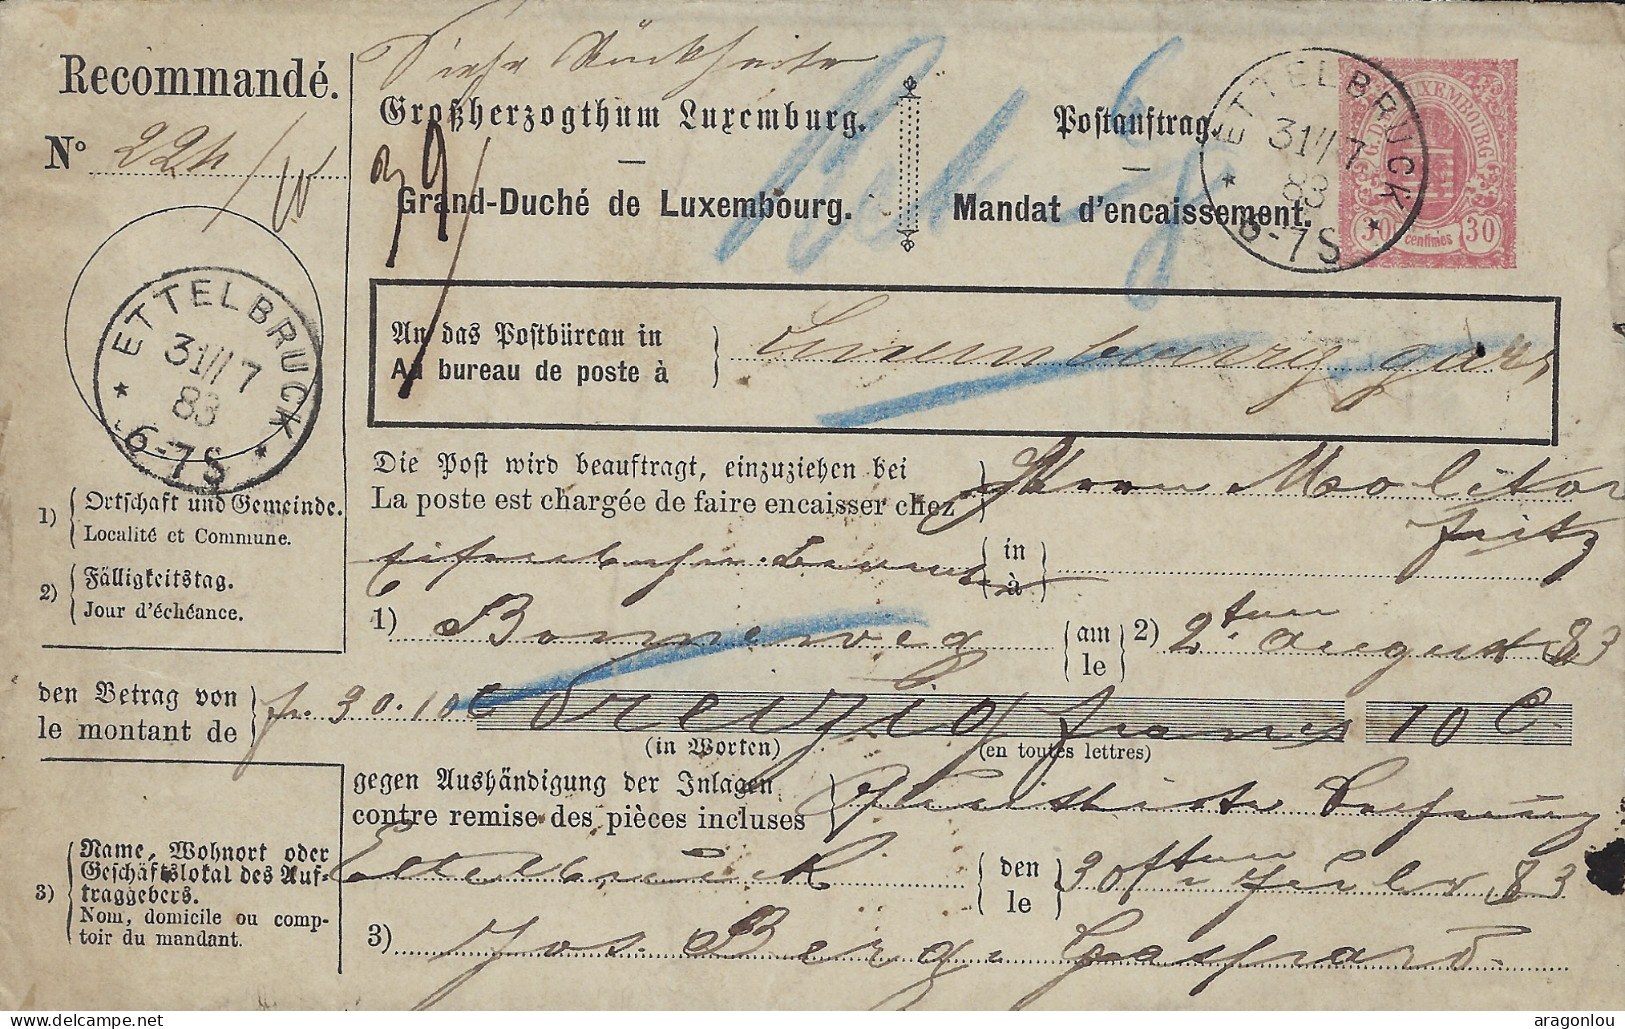 Siehe Rückseite
Recommandé.
Großherzogthum Luxemburg.
Postauftrag.
N° 224
Grand-Duché de Luxembourg.
Mandat d'encaissement.
ETTELBRUCK
31 7
83
6-7S
G. D. LUXEMBOURG
30 centimes 30
An das Postbüreau in
Au bureau de poste à
Luxembourg gare
ETTELBRUCK
31 7
83
6-7S
Die Post wird beauftragt, einzuziehen bei
La poste est chargée de faire encaisser chez
Herrn Molitor
Fritz
1) Ortschaft und Gemeinde.
Localité et Commune.
2) Fälligkeitstag.
Jour d'échéance.
in
à
1) Bonneweg am le 2) 2ten August 83
den Betrag von
le montant de
fr. 30.10 C dreizig francs 10 C.
(in Worten) (en toutes lettres)
gegen Aushändigung der Inlagen
contre remise des pièces incluses
3) Name, Wohnort oder
Geschäftslokal des Auf-
traggebers.
Nom, domicile ou comp-
toir du mandant.
Ettelbrück den le 30ten 83
3) Jos. Berg. Gaspard
aragonlou